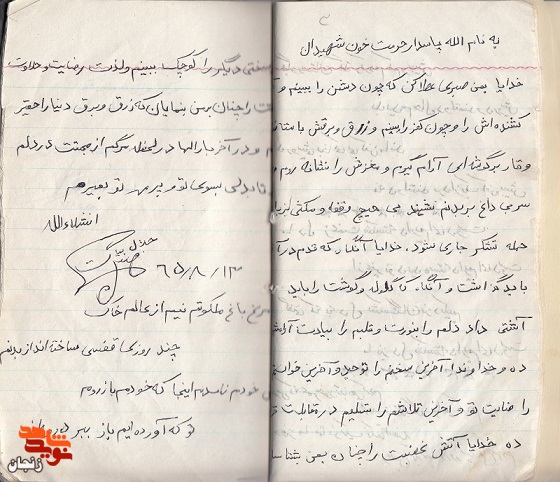 به نام الله پاسدار حرمت خون شهیدان
خدایا بمن صبری عطا کن که چون دشمن را ببینم و
کشنده اش را و چون کفر را ببینم و زرق و برقش با متا
وقار برگوشه ای آرام گیرم و مغزش را نشانه روم و
سربی داغ بر بدنم نشیند بی هیچ وقفه و مکثی
جمله تشکر جاری شود. خدایا آنگاه که قدم در
باید گذاشت و آنگاه که گلوله گوشت را باید
آشتی داد دلم را بنورت و قلبم را بیادت
ده و خداوندا آخرین سخنم را توحید و آخرین
را رضایت تو و آخرین تلاشم را تسلیم در مقابلت
ده خدایا آتش خشمت را چنان بمن بشنا
سختی دیگر را کوچک ببینم و لذت رضایت و حلاوت
را چنان بمن بنمایان که زرق و برق دنیا را حقیر
و در آخر بارالها در لحظه مرگم از محبتت در دلم
تا بسوی تو و بر مهر تو بمیرم
انشاءالله
جلال
۶۵/۸/۱۳
مرغ باغ ملکوتم نیم از عالم خاک
چند روزی قفسی ساخته اند از بدنم
خودم نامدم اینجا که خودم باز روم
تو که آورده ایم باز ببر در
نوید شاهد
زنجان